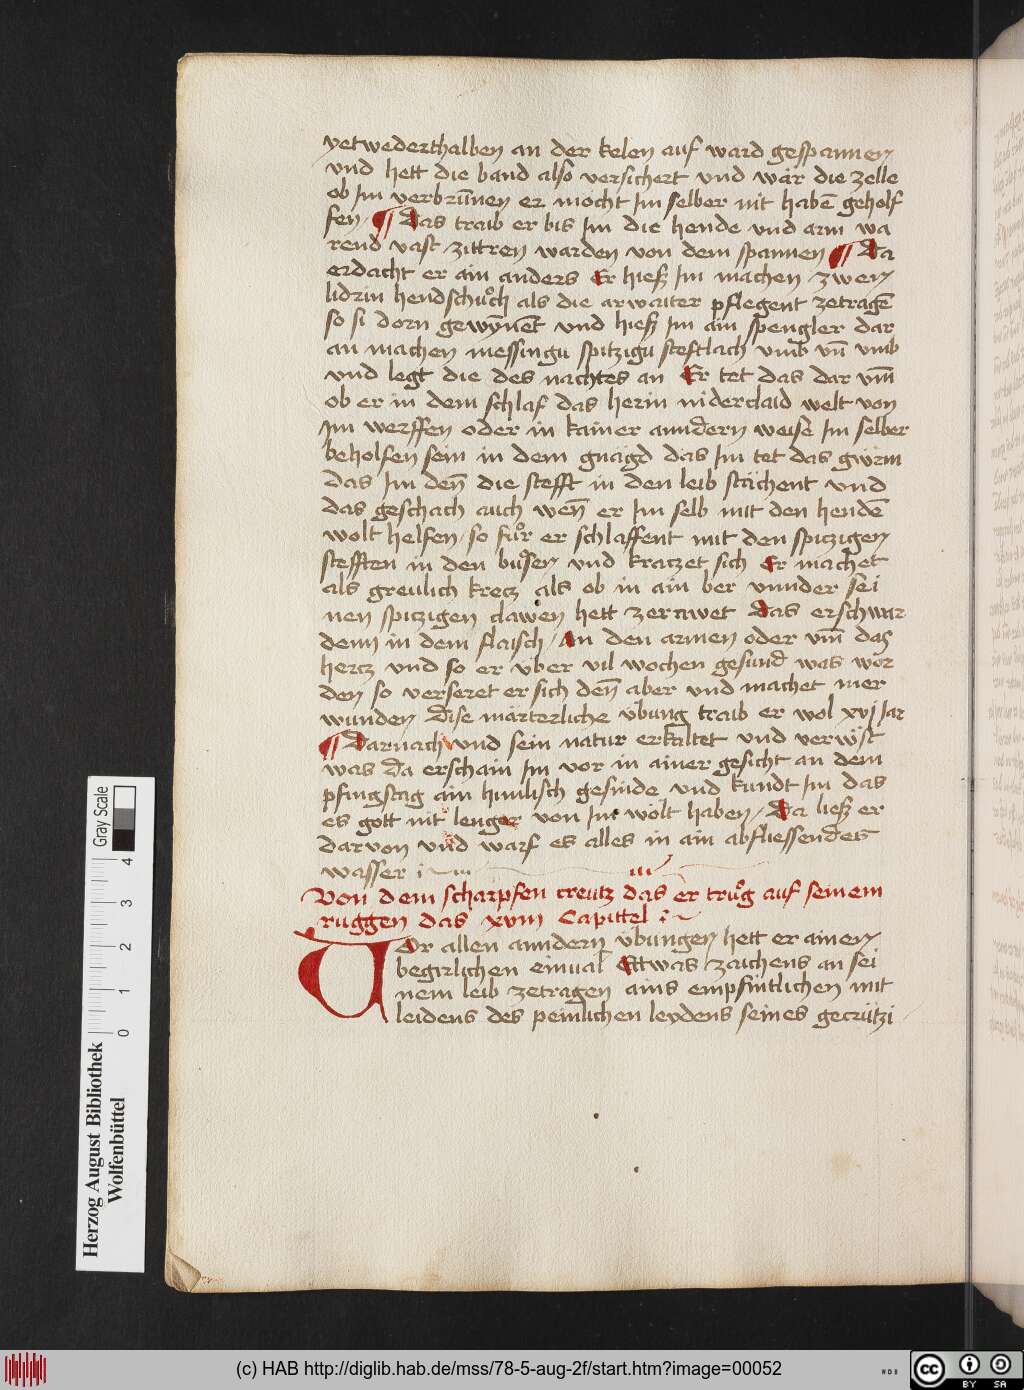 yetwederthalben an der kelen auf ward gespannen
vnd hett die band also versichert vnd wär die zelle
ob Im verbrūnen er möcht Im selber nit habē geholf
fen ¶ Das traib er bis Im die hende vnd arm wa
rend vast zittren warden von dem spannen ¶ Da
erdacht er ain anders Er hieß Im machen zwen
lidrin hendschůch als die arwaiter pflegent zetragē
so si dorn gewynēt vnd hieß Im ain spengler dar
an machen messingu spitzigu steftlach vmb vn̄ vmb
vnd legt die des nachtes an Er tet das dar vm̄
ob er in dem schlaf das herin niderclaid welt von
Im werffen oder in kainer anndern weise Im selber
beholfen sein in dem gnägd das Im tet das gwrm
das Im den̄ die stefft in den leib stächent vnd
das geschach auch wen̄ er Im selb mit den hendē
wolt helfen so fůr er schlaffent mit den spitzigen
stefften in den bůsen vnd kratzet sich Er machet
als greulich kretz als ob in ain ber vnnder sei
nen spitzigen clawen hett zerawet Das erschwar
denn in dem flaisch / An den armen oder vm̄ das
hertz vnd so er über vil wochen gesund was wor
den so verseret er sich den̄ aber vnd machet mer
wunden Dise märterliche übung traib er wol xvj Jar
¶ Darnach vnd sein natur erkaltet vnd verwi̇st
was Da erschain Im vor in ainer gesicht an dem
pfingstag ain himlisch gesinde vnd kundt Im das
es gott nit lenger von Im wölt haben / Da ließ er
darvon vnd warf es alles in ain abfliessendes
wasser
Von dem scharpfen creutz das er trůg auf seinem
ruggen das xviii Capittel
Vor allen anndern übungen hett er ainen
begirlichen einual Ettwas zaichens an sei
nem leib zetragen ains empfintlichen mit
leidens des peinlichen leydens seines gecrützi
Herzog August Bibliothek
Wolfenbüttel
0 1 2 3 4
Gray Scale
(c) HAB http://diglib.hab.de/mss/78-5-aug-2f/start.htm?image=00052
cc BY SA